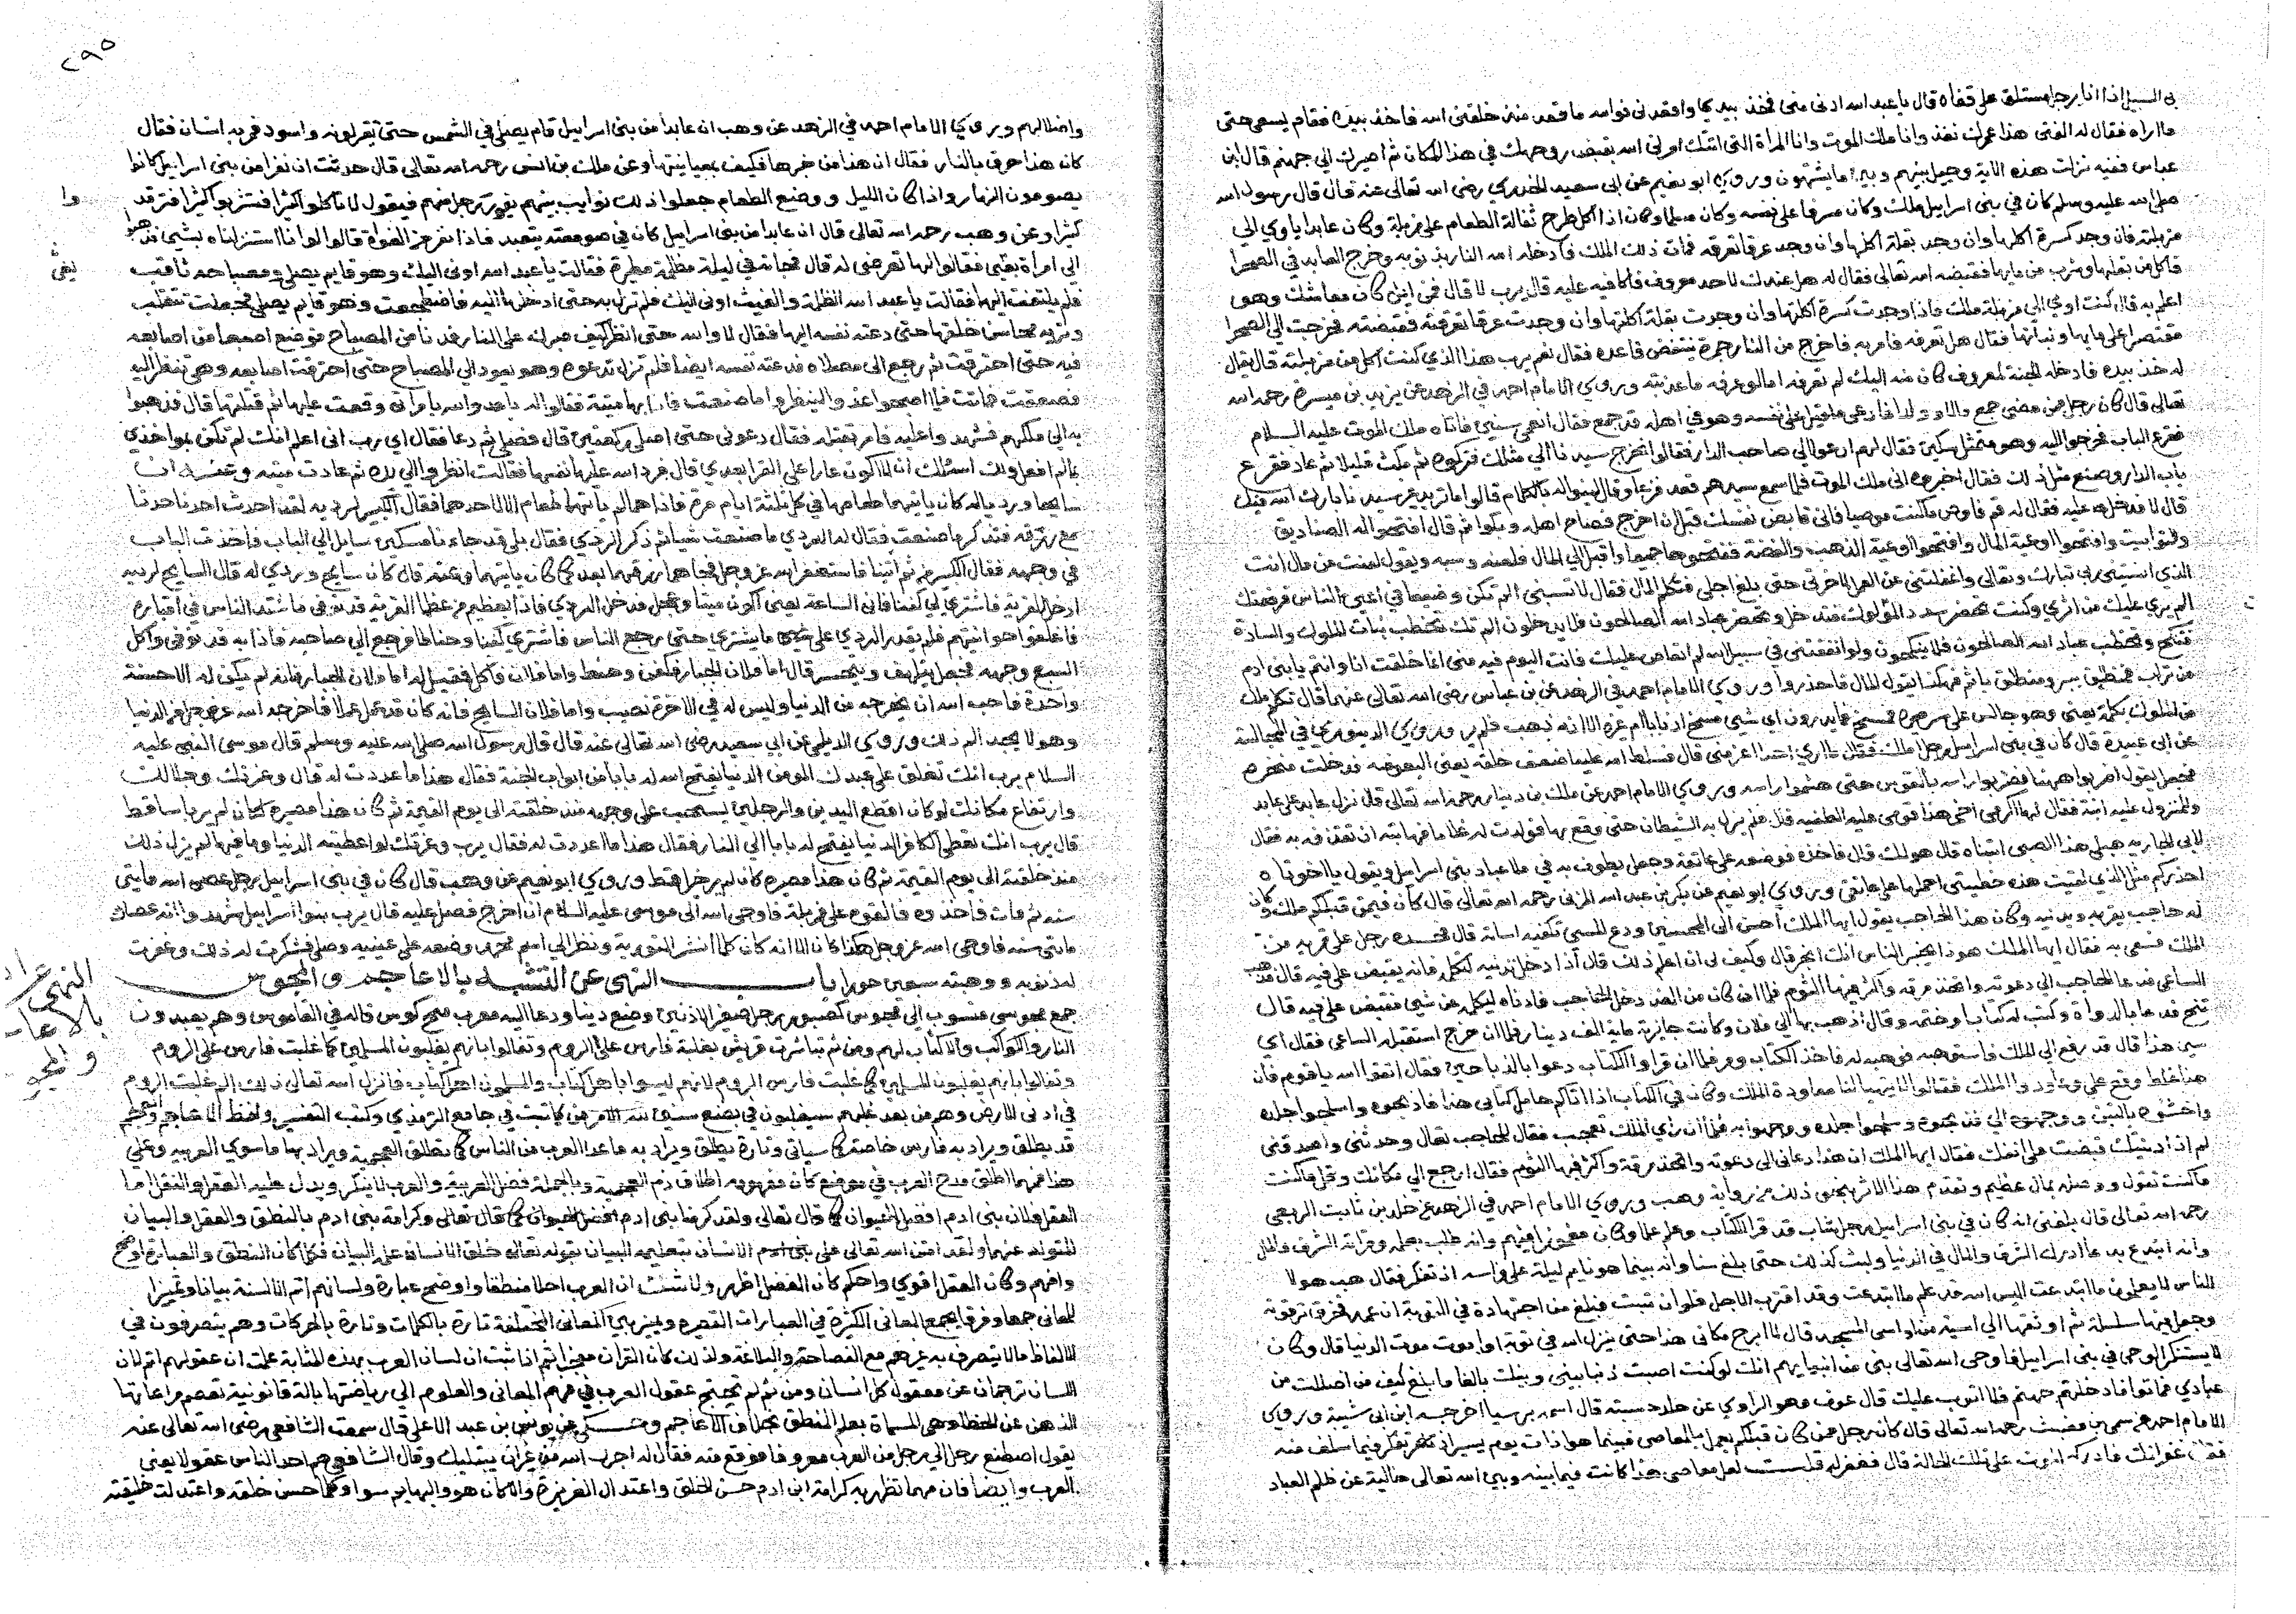 بى السبيل اذا انا برجل مستلق على قفاه قال يا عبد الله ادنى منى فخذ بيدى واقعدنى فوالله ما قعدت منذ خلقنى الله فاخذ بيده فقام يسعى حتى
ما اراه فقال له الفتى هذا عمرك نفذ وانا ملك الموت وانا المراة التى اتتك امرنى الله بقبض روحك في هذا المكان ثم اصيرك الي جهنم قال ابن
عباس ففيه نزلت هذه الاية وحيل بينهم وبين ما يشتهون وروي ابو نعيم عن ابى سعيد الخدري رضى الله تعالى عنه قال قال رسول الله
صلى الله عليه وسلم كان في بنى اسرائيل ملك وكان مسرفا على نفسه وكان مسلما وكان اذا اكل طرح ثفالة الطعام على مزبلة وكان عابد ياوي الى
مزبلته فان وجد كسرة اكلها وان وجد بقلة اكلها وان وجد عرقا تعرقه فمات ذلك الملك فادخله الله النار بذنوبه وخرج العابد في الصحرا
فاكل من بقلها وشرب من مايها فقبضه الله تعالى فقال له هل عندك لاحد معروف فاكافيه عليه قال يرب لا قال فمن اين كان معاشك وهو
اعلم به قال كنت اوي الي مزبلة ملك فاذا وجدت كسرة اكلتها وان وجدت بقلة اكلتها وان وجدت عرقا تعرقته فقبضته فخرجت الي الصحرا
مقتصرا على مايها ونباتها فقال هل تعرفه فامر به فاخرج من النار جمرة تنتفض فاعده فقال نعم يرب هذا الذي كنت اكل من مزبلته قال يقال
له خذ بيده فادخله الجنة لمعروف كان منه اليك لم تعرفه اما لو عرفه ما عذبته وروي الامام احمد في الزهد عن يزيد بن ميسرة رحمه الله
تعالى قال كان رجل ممن مضى جمع مالا وولدا فاوعى ثم اقبل على نفسه وهو في اهله قد جمع فقال انعمي سنين فاتاه ملك الموت عليه السلام
فقرع الباب فخرجوا اليه وهو متمثل بمسكين فقال لهم ادعوا لي صاحب الدار فقالوا يخرج سيدنا الي مثلك فتركوه ثم مكث قليلا ثم عاد فقرع
باب الدار وصنع مثل ذلك فقال اخبروه انى ملك الموت فلما سمع سيدهم قعد فزعا وقال لينوا له بالكلام قالوا ما تريد غير سيدنا بارك الله فيك
قال لا فدخل عليه فقال له قم فاوص ما كنت موصيا فانى قابض نفسك قبل ان اخرج فصاح اهله وبكوا ثم قال افتحوا الصناديق
والتوابيت وافتحوا اوعية المال وافتحوا اوعية الذهب والفضة ففتحوها جميعا واقبل الي المال فلعنه وسبه ويقول لعنت من مال انت
الذي انسيتنى ربى تبارك وتعالى واغفلتنى عن العمل لاخرتى حتى بلغ اجلى فتكلم المال فقال لا تسبنى الم تكن وضيعا في اعين الناس فرفعتك
الم يري عليك من اثري وكنت تحضر سدد الملوك فتدخل ويحضر عباد الله الصالحون فلا يدخلون الم تك تخطب بنات الملوك والسادة
فتنكح وتخطب عباد الله الصالحون فلا ينكحون ولو انفقتنى في سبيل الله لم اتعاص عليك فانت اليوم فيه منى انما خلقت انا وانتم يا بنى ادم
من تراب فمنطلق ببر ومنطلق باثم فهكذا يقول المال فاحذروا وروي الامام احمد في الزهد عن ابن عباس رضى الله تعالى عنهما قال تكلم ملك
من الملوك بكلمة بغى وهو جالس على سريره فمسخ فما يدرون اي شيى مسخ اذباب ام غيره الا انه ذهب فلم ير وروي الدينوري في المجالسة
عن ابى عبيدة قال كان في بنى اسرائيل رجل املك فقال ما اري احدا اعز منى قال فسلط الله عليه اضعف خلقه يعنى البعوضة فدخلت منخره
فجعل يقول اضربوا هاهنا فضربوا راسه بالفوس حتى هشموا راسه وروي الامام احمد عن ملك بن دينار رحمه الله تعالى قال نزل عابد على عابد
وللمنزول عليه ابنة فقال لها اكرمى اخى هذا قومى عليه الطفيه قال فلم يزل به الشيطان حتى وقع بها فولدت له غلاما فهابته ان تقذفه به فقال
لابى الجارية هب لى هذا الصبى اتبناه قال هو لك قال فاخذه فوضعه على عاتقه وجعل يطوف به في ملا عباد بنى اسرائيل ويقول يا اخوتاه
احذركم مثل الذي لقيت هذه خطيئتى احملها على عاتقى وروي ابو نعيم عن بكر بن عبد الله المزنى رحمه الله تعالى قال كان فيمن قبلكم ملك وكان
له حاجب يقربه ويدنيه وكان هذا الحاجب يقول ايها الملك احسن الى المحسنين ودع المسى تكفيه اساته قال فحسده رجل على قربه من
الملك فسعى به فقال ايها الملك هوذا يخبر الناس انك ابخر قال وكيف لى ان اعلم ذلك قال اذا دخل تدنيه ليكلمك فانه يقبض على فيه قال فذهب
الساعى فدعا الحاجب الى دعوته واتخذ مرقه واكثر فيها الثوم فلما ان كان من الغد دخل الحاجب فادناه ليكلمه عن شيى فقبض على فيه قال
تنح فدعا بالدواة وكتب له كتابا وختمه وقال اذهب بهذا الي فلان وكانت جايزته ماية الف دينار فلما ان خرج استقبله الساعى فقال اي
شى هذا قال قد رفع الي الملك فاستوهبه فوهبه له فاخذ الكتاب ومر فلما ان قراوا الكتاب دعوا بالذباحين فقال اتقوا الله يا قوم فان
هذا غلط وقع على وعاودوا الملك فقالوا لا يتهيا لنا معاودة الملك وكان في الكتاب اذا اتاكم حامل كتابى هذا فاذبحوه واسلخوا جلده
واحشوه بالتبن ووجهوه الي فذبحوه وسلخوا جلده ووجهوا به فلما ان راي الملك تعجب فقال للحاجب تعال وحدثنى واصدقنى
لم اذا ادنيتك قبضت على انفك فقال ايها الملك ان هذا دعانى الى دعوته واتخذ مرقة واكثر فيها الثوم فقال ارجع الي مكانك وقل ما كنت
ما كنت تقول ووصله بمال عظيم وتقدم هذا الاثر بمعنى ذلك من رواية وهب وروي الامام احمد في الزهد عن خالد بن ثابت الربعى
رحمه الله تعالى قال بلغنى انه كان في بنى اسرائيل رجل شاب قد قرا الكتاب وعلم علما وكان مغمورا فيهم وانه طلب بعلمه وقراته الشرف والمال
وانه ابتدع بدعا ادرك الشرف والمال في الدنيا ولبث كذلك حتى بلغ سنا وانه بينما هو نايم ليلة على فراسه اذ تفكر فقال هب هولا
الناس لا يعلمون ما ابتدعت اليس الله قد علم ما ابتدعت وقد اقترب الاجل فلو انى تبت فبلغ من اجتهادة في التوبة ان عمد فخرق ترقوته
وجعل فيها سلسلة ثم اوثقها الي اسية من اواسى المسجد قال لا ابرح مكانى هذا حتى ينزل الله في توبة او اموت موت الدنيا قال وكان
لا يستنكر الوحي في بنى اسرائيل فاوحى الله تعالى الى نبى من انبيايهم انك لو كنت اصبت ذنبا بينى وبينك بالغا ما بلغ كيف من اضللت من
عبادي فماتوا فادخلتهم جهنم فلا اتوب عليك قال عوف وهو الراوي عن خالد حسبته قال اسمه برسيا اخرجه ابن ابى شيبة وروي
الامام احمد عن سمى بن مغيث رحمه الله تعالى قال كان رجل ممن كان قبلكم يعمل بالمعاصى فبينما هو ذات يوم يسير اذ تفكر فيما سلف منه
فقال غفرانك فادركه الموت على تلك الحالة قال فغفر له قلت لعل معاصى هذا كانت فيما بينه وبين الله تعالى خالية عن ظلم العباد
٢٩٥
واضلالهم وروي الامام احمد في الزهد عن وهب ان عابدا من بنى اسرائيل قام يصلى في الشمس حتى تغير لونه واسود فمر به انسان فقال
كان هذا حرق بالنار فقال ان هذا من خبرها فكيف بمعاينتها وعن ملك بن انس رحمه الله تعالى قال حدثت ان نفرا من بنى اسرائيل كانوا
يصومون النهار واذا كان الليل ووضع الطعام جعلوا ذلك نوايب بينهم يقوم رجل منهم فيقول لا تاكلوا كثيرا فتشربوا كثيرا فترقدوا
كثيرا وعن وهب رحمه الله تعالى قال ان عابدا من بنى اسرائيل كان في صومعته يتعبد فاذا نفر من الغواة قالوا لو انا استنزلناه بشيى فذهبوا
الي امراة بغى فقالوا لها تعرضى له قال فجاته في ليلة مظلمة مطيرة فقالت يا عبد الله اونى اليك وهو قايم يصلى ومصباحه ثاقب
فلم يلتفت اليها فقالت يا عبد الله الظلمة والغيث اونى اليك فلم تزل به حتى ادخلها اليه فاضطجعت وهو قايم يصلى فجعلت تتقلب
وتريه محاسن خلقها حتى دعته نفسه اليها فقال لا والله حتى انظر كيف صبرك على النار فدنا من المصباح فوضع اصبعا من اصابعه
فيه حتى احترقت ثم رجع الى مصلاه فدعته نفسه ايضا فلم تزل تدعوه وهو يعود الي المصباح حتى احرقت اصابعه وهى تنظر اليه
فصعقت فماتت فلما اصبحوا غدوا لينظروا ما صنعت فاذا بها ميتة فقالوا له يا عدو الله يا مرائى وقعت عليها ثم قتلتها قال فذهبوا
به الي ملكهم فشهدوا عليه فامر بقتله فقال دعونى حتى اصلى ركعتين قال فصلى ثم دعا فقال اي رب انى اعلم انك لم تكن تواخذني
بما لم افعل ولكن اسئلك ان لا اكون عارا على القرا بعدي قال فرد الله عليها نفسها فقالت انظروا الي يده ثم عادت ميتة وعنه ان
سايحا ورديا له كان ياتيهما طعامهما في كل ثلثة ايام مرة فاذا هما لم ياتهما طعام الا لاحدهما فقال الكبير لرديه لقد احدث احدنا حدثا
منع رزقه فتذكر ما صنعت فقال له الردي ما صنعت شيا ثم ذكر الردي فقال بلى قد جاء نا مسكين سايل الي الباب فاخذت الباب
في وجهه فقال الكبير من ثم اتينا فاستغفر الله عز وجل فجاهما رزقهما بعد كما كان ياتيهما وعنه قال كان سايح وردي له قال السايح لرديه
ادخل القرية فاشتري لي كفنا فانى الساعة يعنى اكون ميتا وعجل فدخل الردي فاذا بعظيم من عظما القرية قد توفى فاشتد الناس في اقباره
فاغلقوا حوانيتهم فلم يقدر الردي على شيى ما يشتري حتى رجع الناس فاشترى كفنا وحناطا ورجع الي صاحبه فاذا به قد توفى واكل
السبع وجهه فجعل يتلهف ويتحسر قال اما فلان الجبار فكفن وحنط واما فلان فاكل فقيل له اما فلان الجبار فانه لم يكن له الا حسنة
واحدة فاحب الله ان يخرجه من الدنيا وليس له في الاخرة نصيب واما فلان السايح فانه كان قد عمل عملا فاخرجه الله عز وجل من الدنيا
وهو لا يجد الم ذلك وروي الديلمى عن ابي سعيد رضى الله تعالى عنه قال قال رسول الله صلى الله عليه وسلم قال موسى النبى عليه
السلام يرب انك تغلق على عبدك المومن الدنيا يفتح الله له بابا من ابواب الجنة فقال هذا ما اعددت له قال وعزتك وجلالك
وارتفاع مكانك لو كان اقطع اليدين والرجلين يسحب على وجهه منذ خلقته الي يوم القيمة ثم كان هذا مصيره لكان لم ير باسا قط
قال يرب انك تعطى الكافر الدنيا يفتح له بابا الي النار فقال هذا ما اعددت له فقال يرب وعزتك لو اعطيته الدنيا وما فيها لم يزل ذلك
منذ خلقته الى يوم القيمة ثم كان هذا مصيره كان لم ير خيرا قط وروي ابو نعيم عن وهب قال كان في بنى اسرائيل رجل عصى الله مايتى
سنه ثم مات فاخذوه فالقوه على مزبلة فاوحى الله الى موسى عليه السلام ان اخرج فصل عليه قال يرب بنوا اسرائيل شهدوا انه عصاك
مايتى سنه فاوحى الله عز وجل هكذا كان الا انه كان كلما نشر التورية ونظر الي اسم محمد وضعه على عينيه وصلى فشكرت له ذلك وغفرت
له ذنوبه وزوجته سبعين حورا باب النهى عن التشبه بالاعاجم والمجوس
جمع مجوسى منسوب الي مجوس كصبور رجل صغير الاذنين وضع دينا ودعا اليه معرب منج كوس قاله في القاموس وهم يعبدون
النار والكواكب ولا كتاب لهم ومن ثم تباشرت قريش بغلبة فارس على الروم وتفالوا بانهم يغلبون المسلمين كما غلبت فارس على الروم
وتفالوا بانهم يغلبون المسلمين كما غلبت فارس الروم لانهم ليسوا باهل كتاب والمسلمون اهل كتاب فانزل الله تعالى ذلك الم غلبت الروم
في ادنى الارض وهم من بعد غلبهم سيغلبون في بضع سنين لله الامر من كما ثبت في جامع الترمذي وكتب التفسير ولفظ الاعاجم والعجم
قد يطلق ويراد به فارس خاصة كما سياتى وتارة يطلق ويراد به ما عدا العرب من الناس كما تطلق العجمية ويراد بها ما سوي العربية وعلى
هذا فمهما اطلق مدح العرب في موضع كان مفهومه اطلاق ذم العجمية وبالجملة ففضل العربية والعرب لا ينكر ويدل عليه العقل والنقل اما
العقل فلان بنى ادم افضل الحيوان كما قال تعالى ولقد كرمنا بنى ادم افضل الحيوان كما قال تعالى وكرامة بنى ادم بالنطق والعقل والبيان
المتولد عنهما ولقد امتن الله تعالى على بنى ادم الانسان بتعليمه البيان بقوله تعالى خلق الانسان علمه البيان فلما كان النطق والعبارة اوضح
وافهم وكان العقل اقوي واحكم كان الفضل اظهر ولا شك ان العرب احلا منطقا واوضح عبارة ولسانهم اتم الالسنة بيانا وتميزا
للمعانى جمعا وفرقا يجمع المعانى الكثيرة في العبارات القصيره ويميز بين المعانى المختلفة تارة بالكلمات وتارة بالحركات وهم يتصرفون في
الالفاظ ما لا يتصرف به غيرهم مع الفصاحة والبلاغة ولذلك كان القران معجزا ثم اذا ثبت ان لسان العرب بهذه المثابة علمت ان عقولهم اتم لان
اللسان ترجمان عن معقول كل انسان ومن ثم لم تحتج عقول العرب في فهم المعانى والعلوم الي رياضتها بالة قانونية تعصم مراعاتها
الذهن عن الخطا وهى المسماة بعلم المنطق بخلاف الاعاجم وحكى عن يونس بن عبد الاعلى قال سمعت الشافعى رضى الله تعالى عنه
يقول اصطنع رجل الي رجل من العرب معروفا فوقع منه فقال له اجرك الله من غير ان يبتليك وقال الشافعى هم احد الناس عقولا يعنى
العرب وايضا فان مهما تظهر به كرامة ابن ادم حسن الخلق واعتدال الغريزة والا كان هو والبهايم سوا وكلما حسن خلقه واعتدلت خليقته
النهى
بالاعا
والمجو